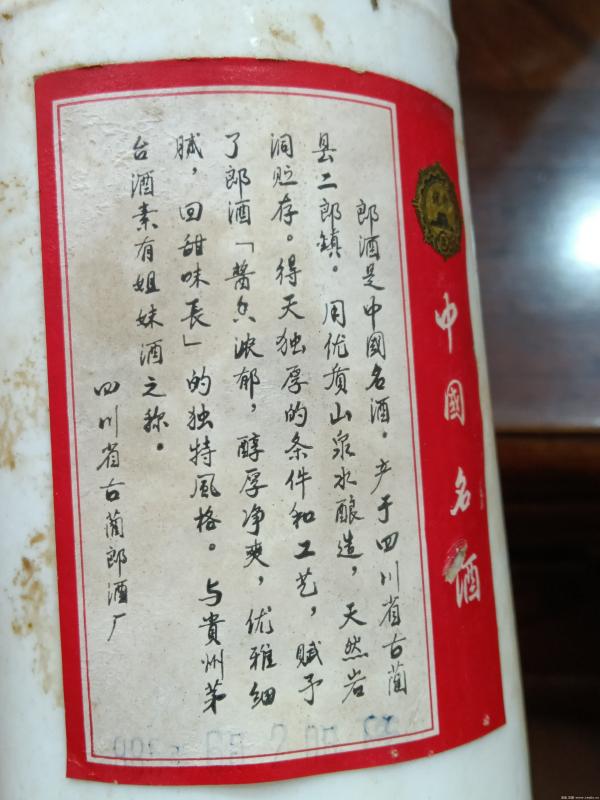 郎酒是中國名酒。产于四川省古蔺
县二郎镇。用优质山泉水酿造，天然岩
洞贮存。得天独厚的条件和工艺，赋予
了郎酒「酱香浓郁，醇厚净爽，优雅细
腻，回甜味长」的独特風格。与貴州茅
台酒素有姐妹酒之称。
四川省古蔺郎酒厂
中國名酒